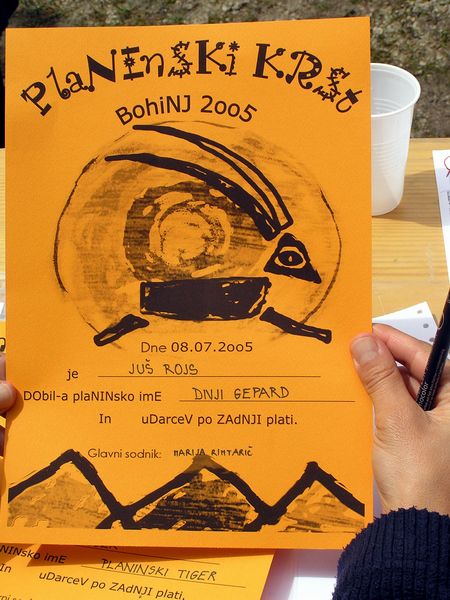 PlaNInSKi KRSt
BohiNJ 2oo5
Dne 08.07.2oo5
je JUŠ ROJS
DObil-a plaNINsko imE DNJI GEPARD
In uDarceV po ZAdNJI plati.
Glavni sodnik: MARIJA RIHTARIČ
NINsko imE PLANINSKI TIGER
In uDarceV po ZAdNJI plati.